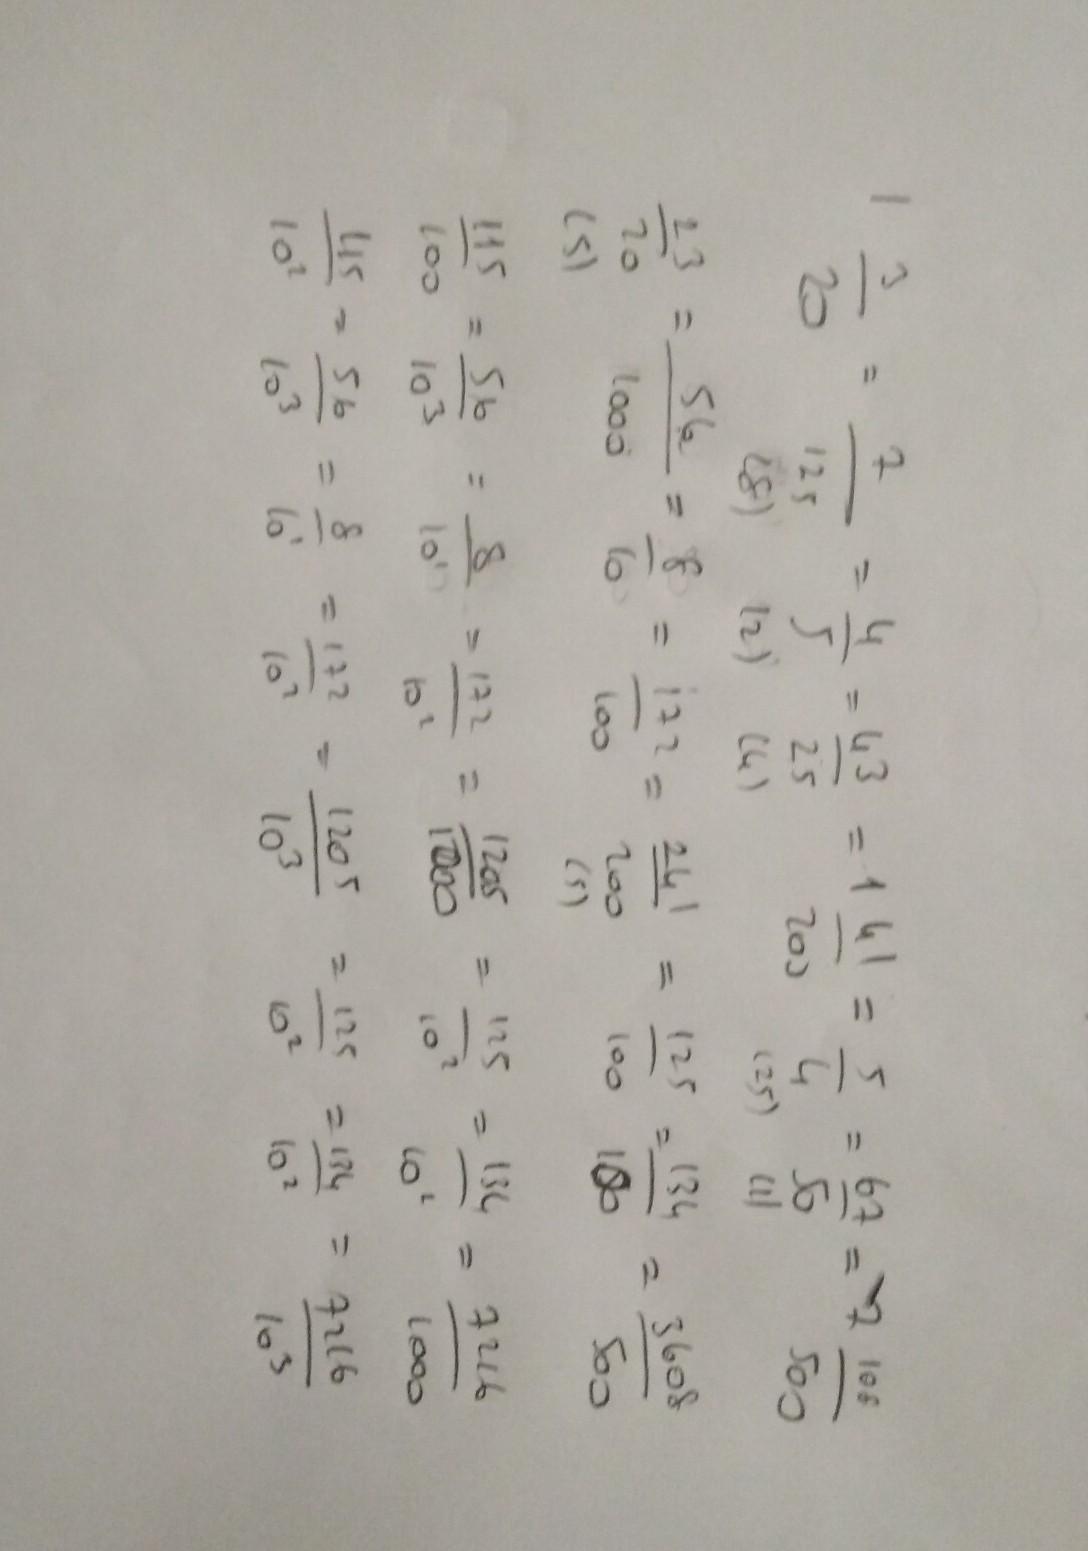 1 3/20 = 7/125 = 4/5 = 43/25 = 1 41/200 = 5/4 = 67/50 = 7 108/500
(8) (2) (4) (25)
23/20 = 56/1000 = 8/10 = 172/100 = 241/200 = 125/100 = 134/100 = 3608/500
(5) (5)
115/100 = 56/10³ = 8/10¹ = 172/10² = 1205/1000 = 125/10² = 134/10² = 7216/1000
115/10² = 56/10³ = 8/10¹ = 172/10² = 1205/10³ = 125/10² = 134/10² = 7216/10³